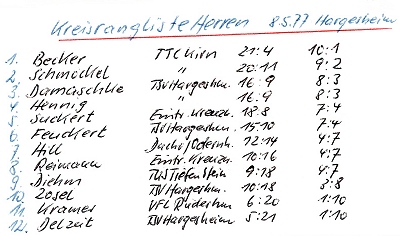 Kreisrangliste Herren 8.5.77 Hargesheim
1. Becker TTC Kirn 21:4 10:1
2. Schmockel " 20:11 9:2
3. Damaschke TSV Hargeshm. 16:9 8:3
4. Hennig " 16:9 8:3
5. Suckert Eintr. Kreuzn. 18:8 7:4
6. Feuckert TSV Hargeshm. 15:10 7:4
7. Hill 12:14 4:7
8. Reimann Eintr. Kreuzn. 10:16 4:7
9. Diehm TUS Tiefenstein 9:18 4:7
10. Zosel TSV Hargeshm. 10:18 3:8
11. Kramer VFL Rüdeshm. 6:20 1:10
12. Delzeit TSV Hargesheim 5:21 1:10